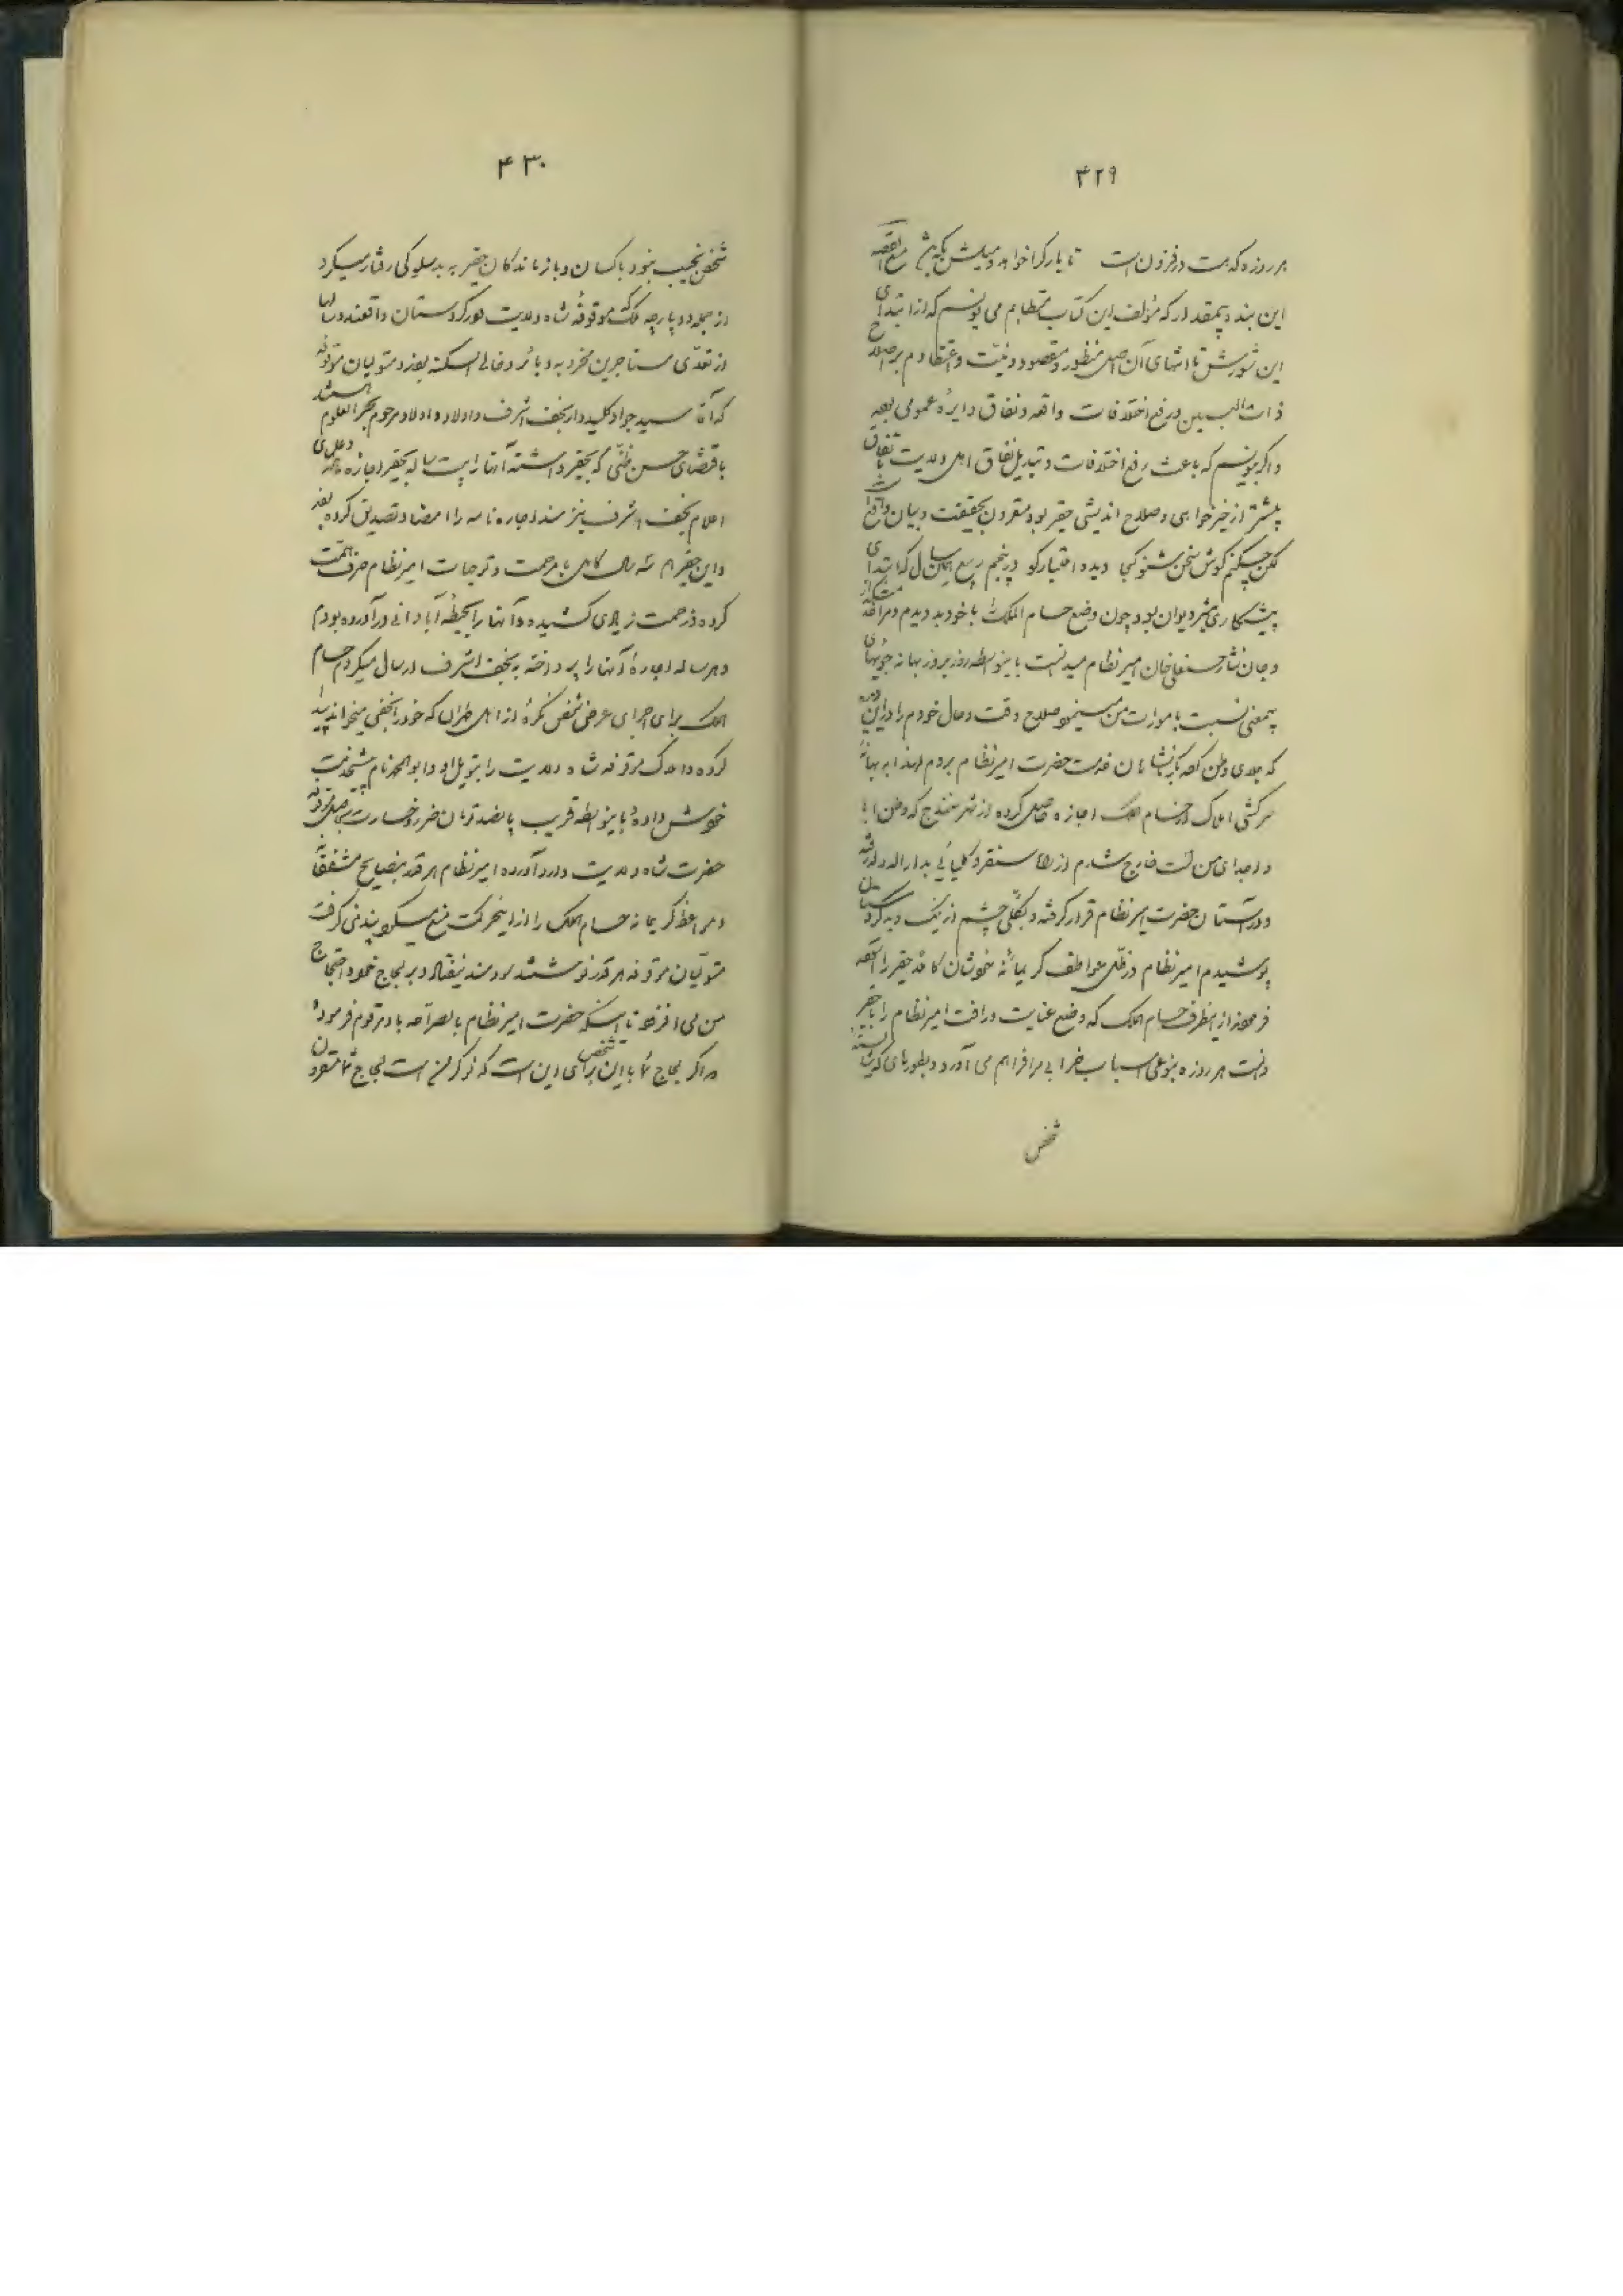 ۴۲۹
هر روزه که هست در فزون است تا یار کرا خواهد و میلش بکه
این بنده بیمقدار که مؤلف این کتاب می نویسم که از ابتدای
این شورش تا انتهای آن اصل منظور و مقصود و نیت و اعتقادم بر اصلاح
ذات البین و رفع اختلافات واقعه و نفاق دایرهٔ عمومی بود
و اگر بنویسم که باعث رفع اختلافات و تبدیل نفاق اهل ولایت باتفاق
بیشتر از خیر خواهی و صلاح اندیشی حقیر بود مقرون بحقیقت و بیان واقع است
لکن چکنم گوش سخن شنو کجا دیده اعتبار کو در پنجم ربیع این سال که ابتدای
پیشکاری بود چون وضع حسام الملک را با خود بد دیدم و مرا
و جان نثار حسنعلی خان امیر نظام میدانست باینواسطه روز بروز بهانه جوئیهای
بیمعنی نسبت با مورات من مینمود صلاح وقت و حال خودم را در این
که جلای وطن کرده خدمت حضرت امیر نظام بروم لهذا به بهانهٔ
سر کشی املاک از حسام الملک اجازه حاصل کرده از شهر سنندج که وطن آبا
و اجدای من است خارج شدم از راه سنقر و کلیائی بدار الدوله رفته
و در آستان حضرت امیر نظام قرار گرفته و بکلی چشم از نیک و بد کردستان
پوشیدم امیر نظام در ظل عواطف کریمانه خودشان حقیر را آسوده
فرمودند از اینطرف حسام الملک که وضع عنایت و رأفت امیر نظام را با حقیر
دانست هر روزه بنوعی اسباب خرابی مرا فراهم می آورد و بطورهای که
شخص
۴۳۰
شخص نجیب نبود با کسان و بازماندکان حقیر به بدسلوکی رفتار میکرد
از جمله دو پارچه ملک موقوفهٔ شاه ولایت که در کردستان واقعند و سالها
از تعدی مستأجرین مخروبه و بائر و خالی السکنه بودند متولیان موقوفه
که آقا سید جواد کلیددار نجف اشرف و اولاد و اولاد مرحوم بحر العلوم هستند
باقتضای حسن ظنی که بحقیر داشتند آنها را بیست ساله بحقیر اجاره داده و علمای
اعلام نجف اشرف نیز سند اجاره نامه را امضا و تصدیق کرده بودند
و این حقیر هم سه سال کامل با مرحمت و توجهات امیر نظام صرف همت
کرده و زحمت زیادی کشیده و آنها را بحیطهٔ آبادانی در آورده بودم
و هر ساله اجارهٔ آنها را پرداخته به نجف اشرف ارسال میکردم حسام
الملک برای اجرای غرض شخص نکرهٔ از اهل طهران که خود را نجفی میخواند پیدا
کرده و املاک موقوفه شاه ولایت را بتیول او و ابوالمحمد نام پیشخدمت
خودش داده باینواسطه قریب پانصد تومان ضرر و خسارت بحاصل موقوفه
حضرت شاه ولایت وارد آورده امیر نظام هر قدر بنصایح مشفقانه
و مواعظ کریمانه حسام الملک را از اینحرکت منع میکرد پند نمی گرفت
متولیان موقوفه هر قدر نوشتند سودمند نیفتاد و بر لجاج خود و احتجاج
من می افزود تا اینکه حضرت امیر نظام بالصراحه باو مرقوم فرمود
که اگر لجاج شما با این شخص برای این است که نوکر من است لجاج شما مقرون